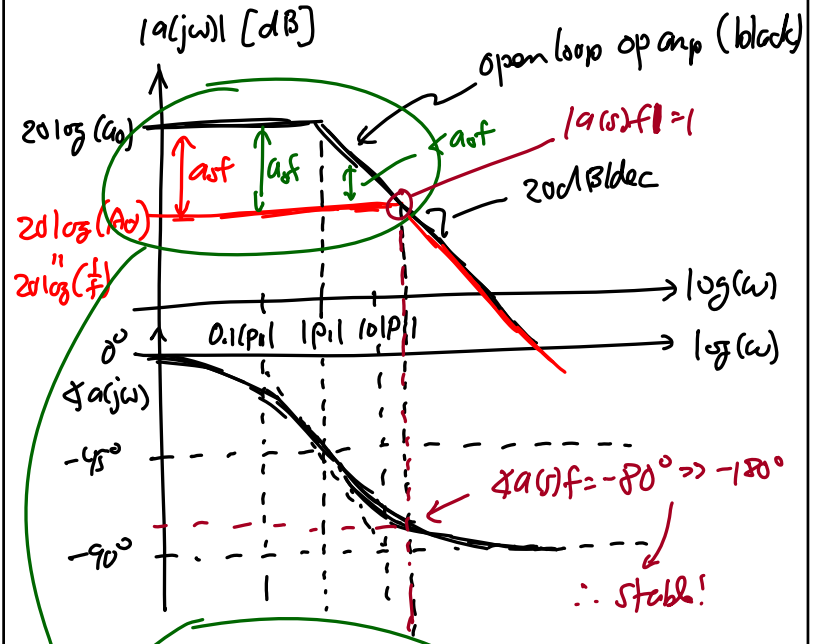 |a(jω)| [dB]
open loop op amp (black)
20log(a₀)
|a(s)f|=1
a₀f
a₀f
< a₀f
20dB/dec
20log(A₀)
"
20log(1/f)
log(ω)
0.1|p₁| |p₁| 10|p₁|
0°
log(ω)
∡a(jω)
-45°
∡a(s)f=-80° >> -180°
-90°
∴ stable!